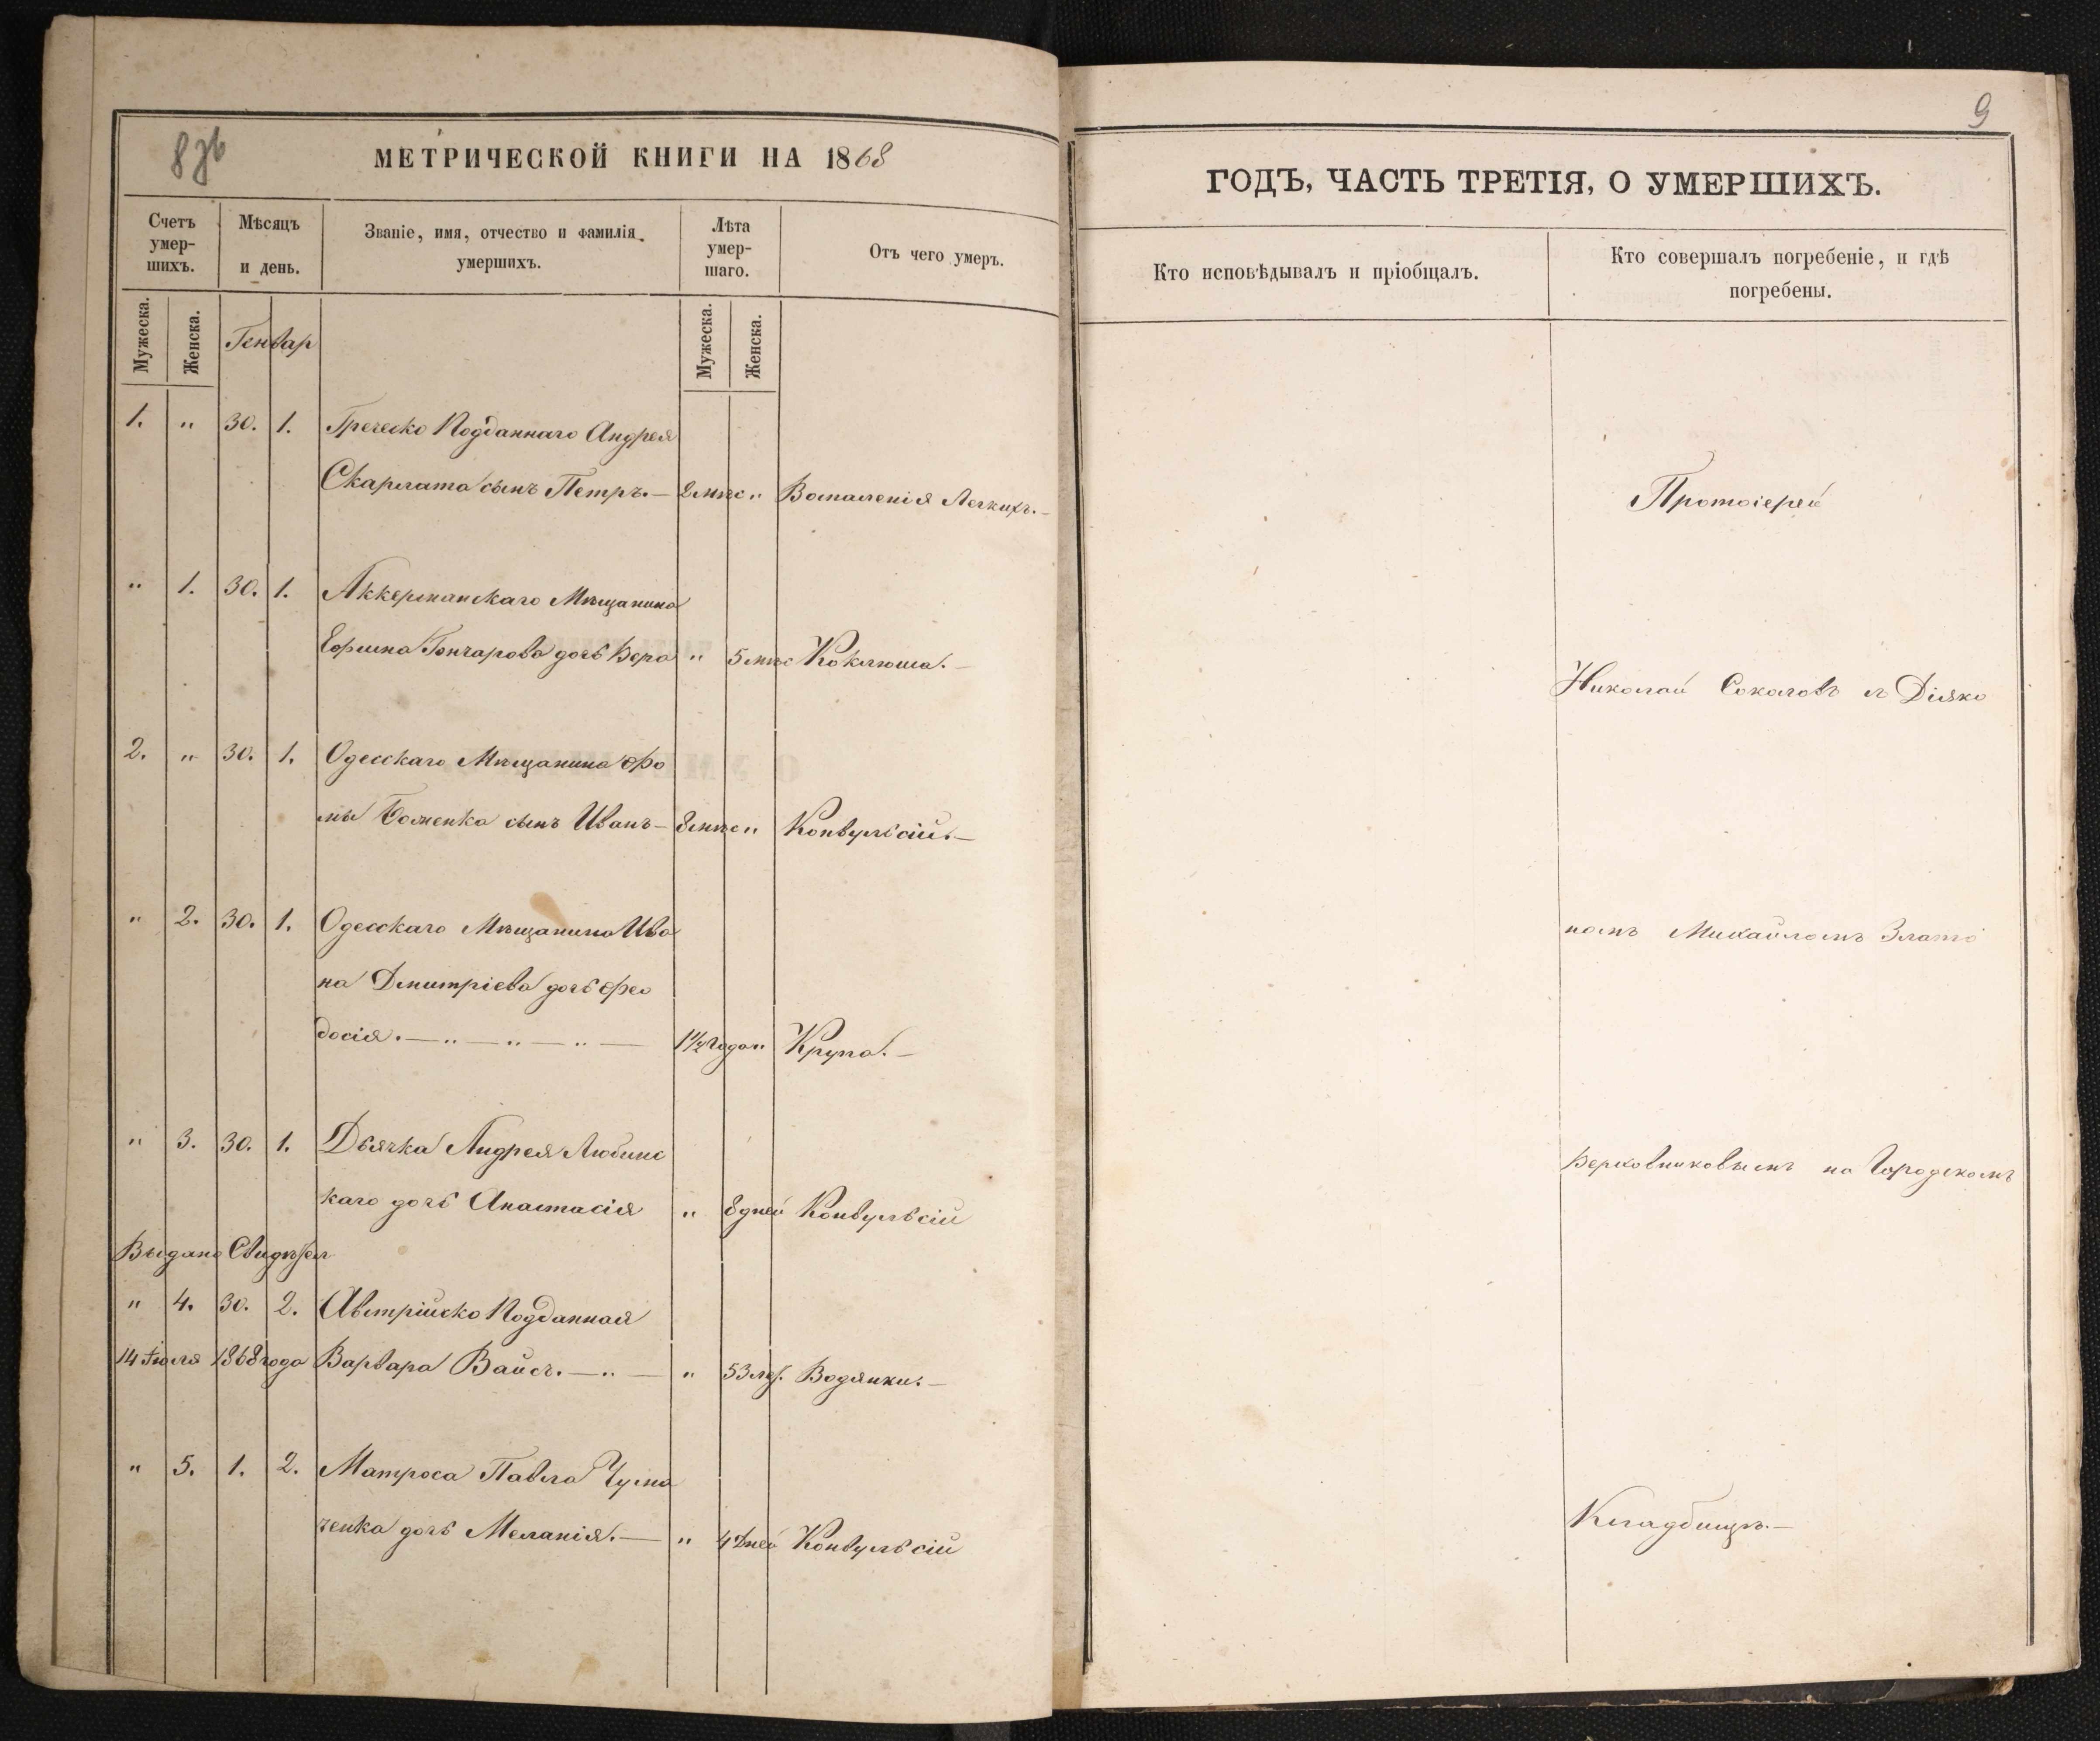 8зв
МЕТРИЧЕСКОЙ КНИГИ НА 1868
Счетъ умер-шихъ.
Мѣсяцъ и день.
Званіе, имя, отчество и фамилія умершихъ.
Лѣта умер-шаго.
Отъ чего умеръ.
Мужеска.
Женска.
Генвар
Мужеска.
Женска.
1. " 30. 1. Греческо Подданнаго Андрея
Скарлата сынъ Петръ. — 2 мѣс " Воспаленія Легкихъ. —
" 1. 30. 1. Аккерманскаго Мѣщанина
Ефима Гончарова дочь Вера " 5 мѣс Коклюша. —
2. " 30. 1. Одесскаго Мѣщанина Фо
мы Боженка сынъ Иванъ — 8 мѣс " Конвульсій. —
" 2. 30. 1. Одесскаго Мѣщанина Ива
на Дмитріева дочь Фео
досія. — " — " — " — 1½ года " Крупа. —
" 3. 30. 1. Дьячка Андрея Любинс
каго дочь Анастасія " 8 дней Конвульсій
Выдано Свидѣтел
" 4. 30. 2. Австрійско Подданная
14 Іюля 1868 года Варвара Вайсъ. — " — " 53 лѣт. Водянки. —
" 5. 1. 2. Матроса Павла Чума
ченка дочь Меланія. — " 4 Дней Конвульсій
9
ГОДЪ, ЧАСТЬ ТРЕТІЯ, О УМЕРШИХЪ.
Кто исповѣдывалъ и пріобщалъ.
Кто совершалъ погребеніе, и гдѣ погребены.
Протоіерей
Николай Соколовъ съ Діяко
номъ Михайломъ Злато
Верховниковымъ на Городскомъ
Кладбищѣ. —